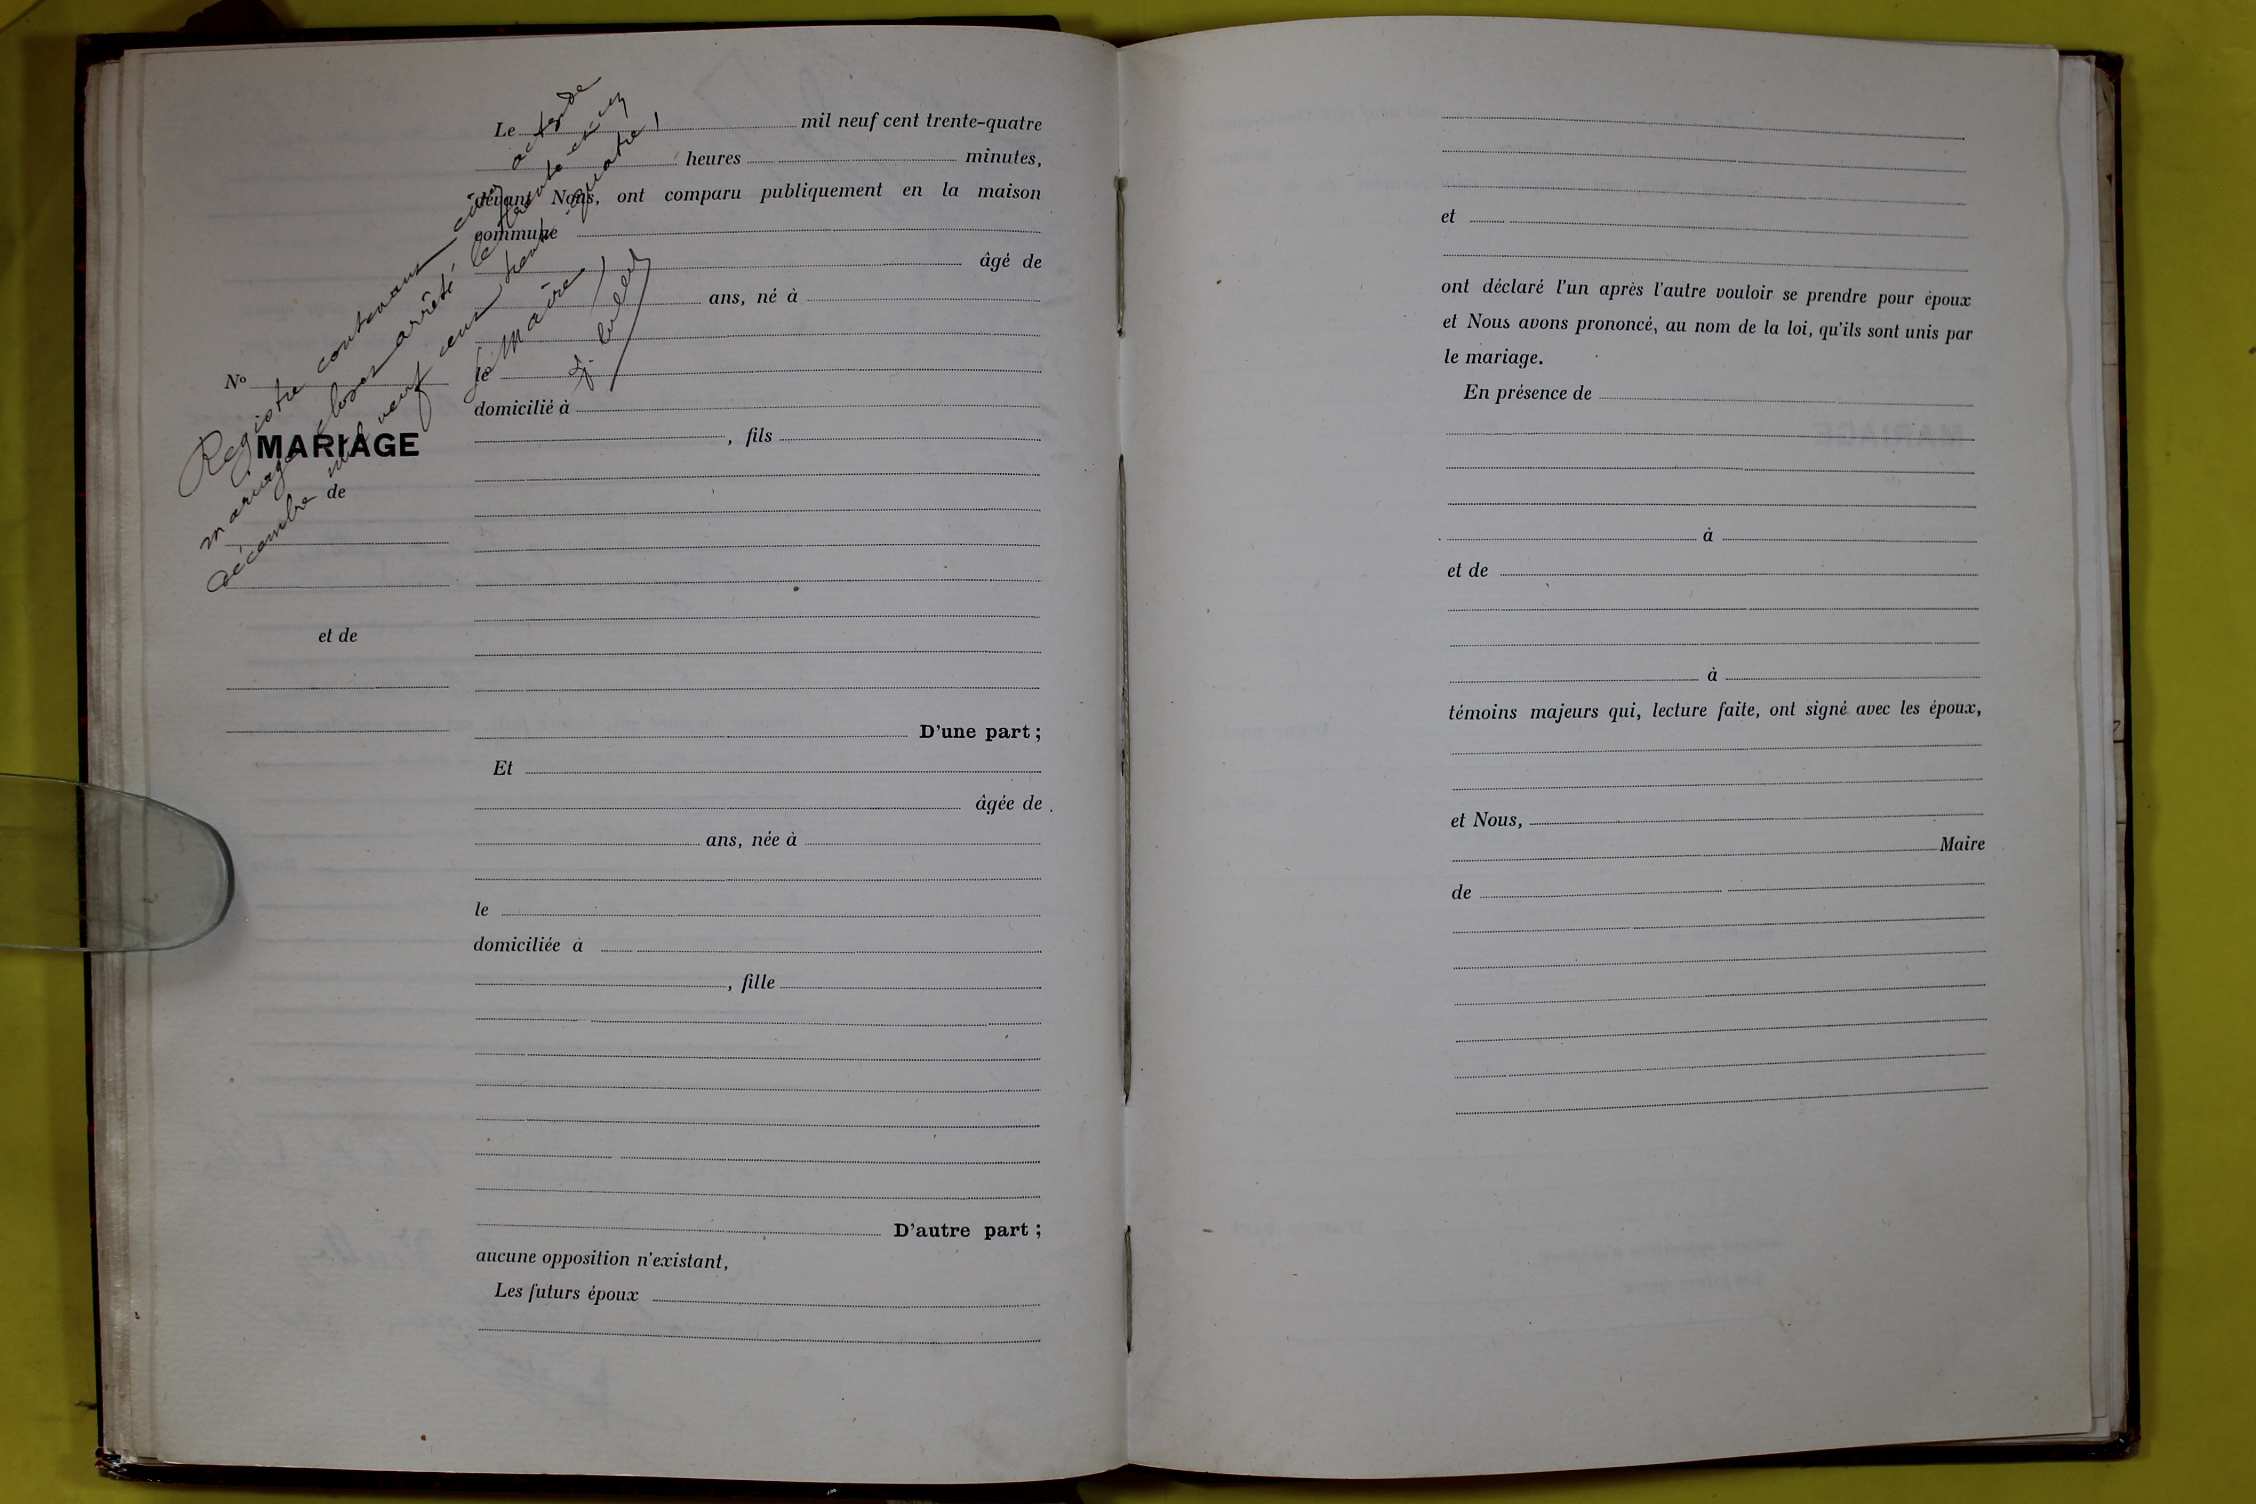 Registre contenant cinq actes de
mariage clos et arrêté le trente et un
décembre mil neuf cent trente-quatre
Le Maire
N°
MARIAGE
de
et de
Le mil neuf cent trente-quatre
heures minutes,
devant Nous, ont comparu publiquement en la maison
commune
âgé de
ans, né à
le
domicilié à
, fils
D'une part ;
Et
âgée de
ans, née à
le
domiciliée à
, fille
D'autre part ;
aucune opposition n'existant,
Les futurs époux
et
ont déclaré l'un après l'autre vouloir se prendre pour époux
et Nous avons prononcé, au nom de la loi, qu'ils sont unis par
le mariage.
En présence de
à
et de
à
témoins majeurs qui, lecture faite, ont signé avec les époux,
et Nous,
Maire
de